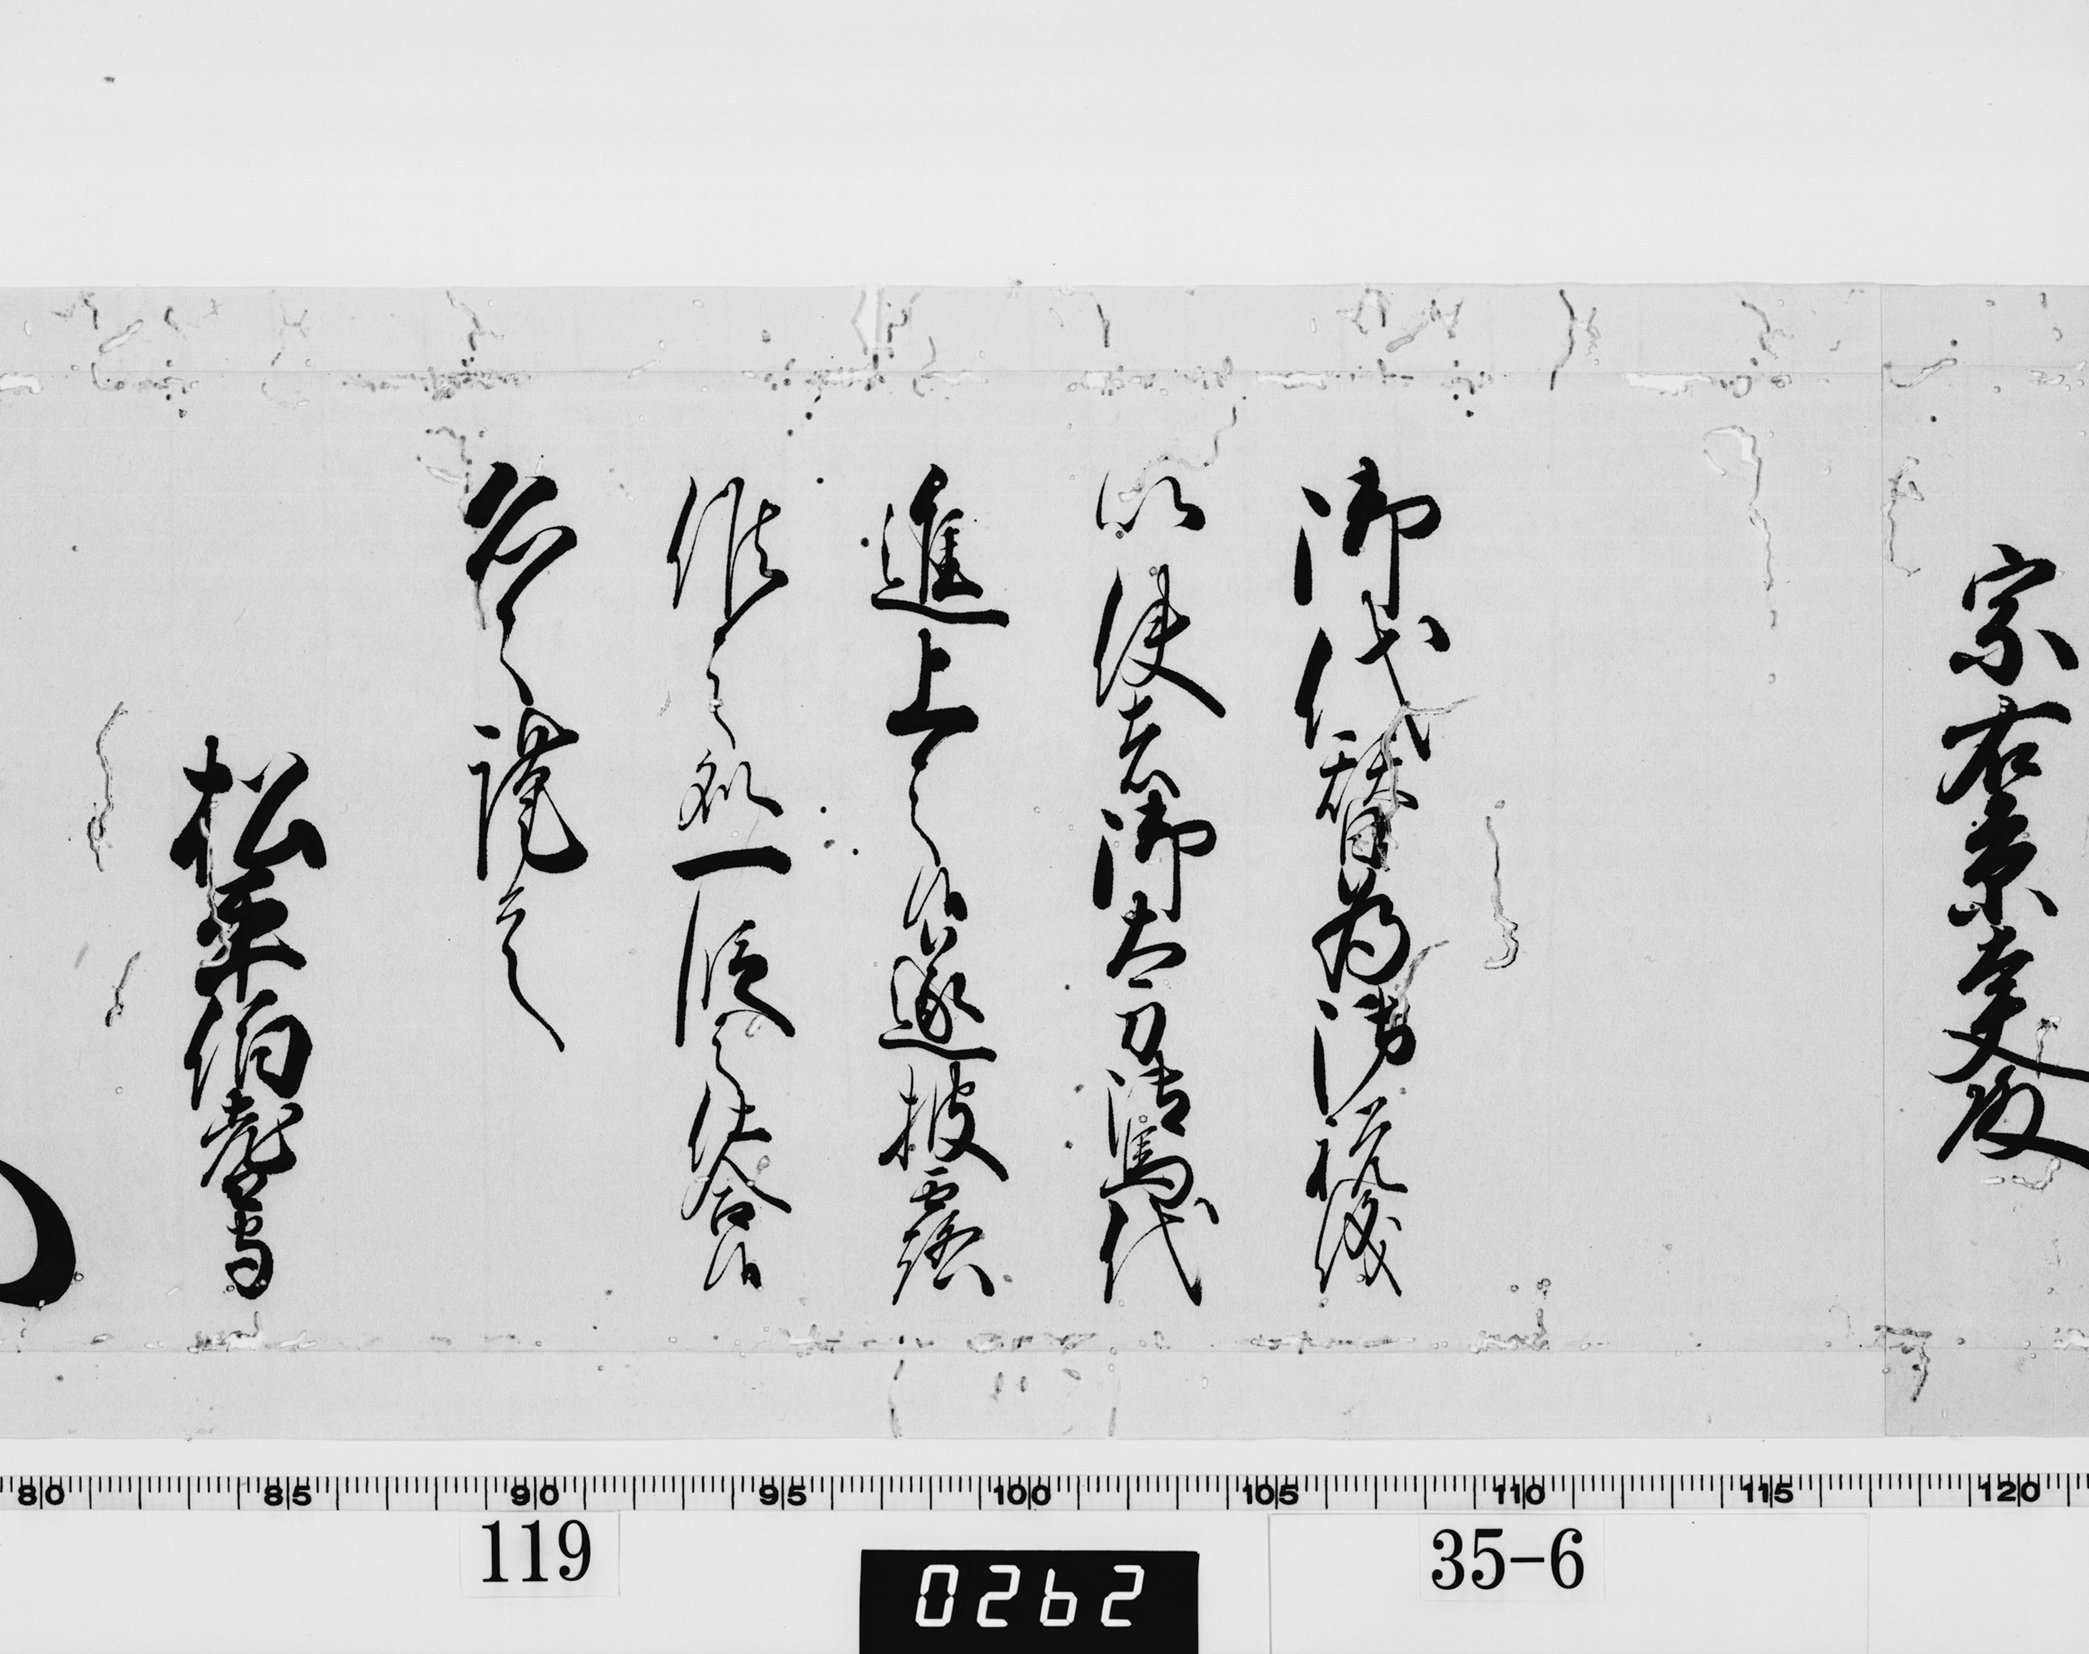 宗右京大夫殿
御代替為御祝儀
以使者御太刀御馬代
進上之候遂披露
候之処一段之仕合候
恐々謹言
松平伯耆守
80 85 90 95 100 105 110 115 120
119
0262
35-6